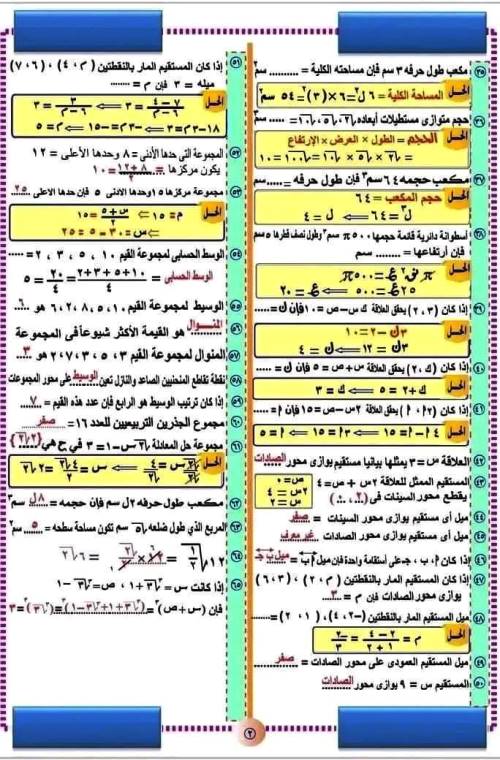 ٣٥ مكعب طول حرفه ٣ سم فإن مساحته الكلية = .......... سم٢
الحل
المساحة الكلية = ٦ل٢ = ٦×(٣)٢ = ٥٤ سم٢
٣٦ حجم متوازى مستطيلات أبعاده √٢ ، √٥ ، √١٠ = ..... سم٣
الحل
الحجم = الطول × العرض × الإرتفاع
= √٢ × √٥ × √١٠ = √١٠٠ = ١٠
٣٧ مكعب حجمه ٦٤ سم٣ فإن طول حرفه = ......سم
الحل
حجم المكعب = ٦٤
ل٣ = ٦٤ ⟸ ل = ٤
٣٨ أسطوانة دائرية قائمة حجمها ٥٠٠ π سم٣ وطول نصف قطرها ٥ سم
فإن أرتفاعها = ........ سم
الحل
π نق٢ ع = ٥٠٠ π
٢٥ ع = ٥٠٠ ⟸ ع = ٢٠
٣٩ إذا كان (٣،٢) يحقق العلاقة ك س − ص = ١٠ فإن ك = .....
الحل
٣ك − ٢ = ١٠
٣ك = ١٢ ⟸ ك = ٤
٤٠ إذا كان (ك ، ٢) يحقق العلاقة س + ص = ٥ فإن ك = .....
الحل
ك + ٢ = ٥ ⟸ ك = ٣
٤١ إذا كان (٢أ ، أ) يحقق العلاقة ٢س − ص = ١٥ فإن أ = .....
الحل
٤أ − أ = ١٥ ⟸ ٣أ = ١٥ ⟸ أ = ٥
٤٢ العلاقة س = ٣ يمثلها بيانيا مستقيم يوازى محور الصادات
٤٣ المستقيم الممثل للعلاقة ٢س + ص = ٤
يقطع محور السينات فى (٢ ، ٠)
ص = ٠
٢س = ٤
س = ٢
٤٤ ميل أى مستقيم يوازى محور السينات = صفر
٤٥ ميل أى مستقيم يوازى محور الصادات غير معرف
٤٦ إذا كان أ ، ب ، جـ على أستقامة واحدة فإن ميل أب = ميل ب جـ
٤٧ إذا كان المستقيم المار بالنقطتين (م ، ٢) ، (٣ ، ٦)
يوازى محور الصادات فإن م = ٣
٤٨ ميل المستقيم المار بالنقطتين (−٢ ، ٤) ، (١ ، ٢) = ........
الحل
م = ٢−٤ / ١+٢ = −٢ / ٣
٤٩ ميل المستقيم العمودى على محور الصادات = صفر
٥٠ المستقيم س = ٩ يوازى محور الصادات
٥١ إذا كان المستقيم المار بالنقطتين (م ، ٤) ، (٦ ، ٧)
ميله = ٣ فإن م = ........
الحل
٧−٤ / ٦−م = ٣ ⟸ ٣ / ٦−م = ٣
١٨−٣م = ٣ ⟸ −٣م = −١٥ ⟸ م = ٥
٥٢ المجموعة التى حدها الأدنى = ٨ وحدها الأعلى = ١٢
يكون مركزها = ٨+١٢ / ٢ = ١٠
٥٣ مجموعة مركزها ١٥ وحدها الأدنى ٥ فإن حدها الأعلى ٢٥
الحل
م = ١٥ ⟸ س+٥ / ٢ = ١٥
⟸ س = ٣٠ − ٥ = ٢٥
٥٤ الوسط الحسابى لمجموعة القيم ١٠ ، ٥ ، ٣ ، ٢ = .....
الوسط الحسابى = ١٠+٥+٣+٢ / ٤ = ٢٠ / ٤ = ٥
٥٥ الوسيط لمجموعة القيم ١٠ ، ٥ ، ٨ ، ٢ ، ٦ هو ٦
٥٦ المنـوال هو القيمة الأكثر شيوعاً فى المجموعة
٥٧ المنوال لمجموعة القيم ٣ ، ٥ ، ٣ ، ٧ ، ٢ هو ٣
٥٨ نقطة تقاطع المنحنيين الصاعد والنازل تعين الوسيط على محور المجموعات
٥٩ إذا كان ترتيب الوسيط هو الرابع فإن عدد هذه القيم = ٧
٦٠ مجموع الجذرين التربيعيين للعدد ١٦ = صفر
٦١ مجموعة حل المعادلة √٢ س − ١ = ٣ فى ح هي {٢√٢}
الحل
√٢ س / √٢ = ٤ / √٢ ⟸ س = ٤√٢ / ٢ = ٢√٢
٦٢ مكعب طول حرفه ٢ل سم فإن حجمه = ٨ل٣ سم٣
٦٣ المربع الذي طول ضلعه √٥ سم تكون مساحة سطحه = ٥ سم٢
٦٥ إذا كانت س = √٣ + ١ ، ص = √٣ − ١
فإن (س + ص)٢ = (√٣ + ١ + √٣ − ١)٢
٢